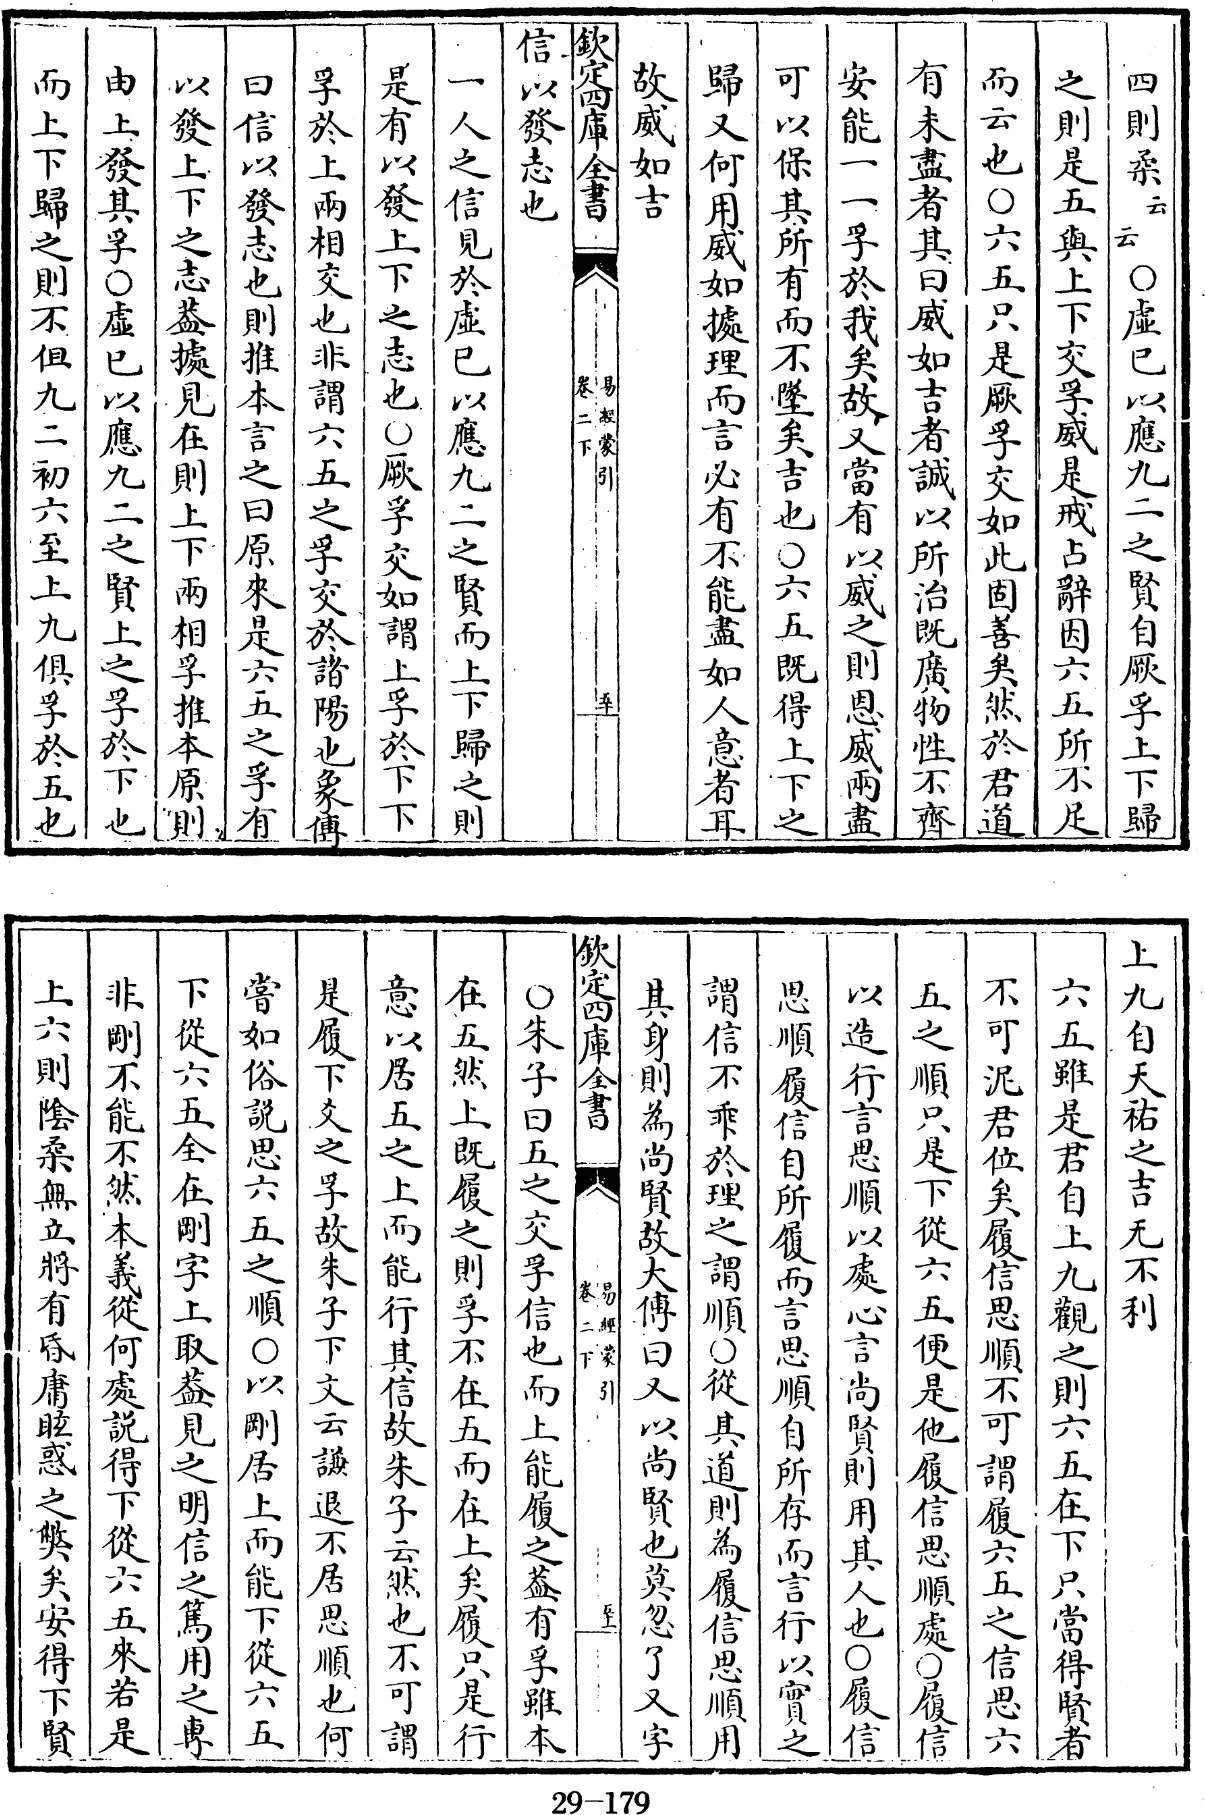 四則柔云云○虛已以應九二之賢自厥孚上下歸
之則是五與上下交孚威是戒占辭因六五所不足
而云也○六五只是厥孚交如此固善矣然於君道
有未盡者其曰威如吉者誠以所治既廣物性不齊
安能一一孚於我矣故又當有以威之則恩威兩盡
可以保其所有而不墜矣吉也○六五既得上下之
歸又何用威如據理而言必有不能盡如人意者耳
故威如吉
欽定四庫全書
易經蒙引
卷二下
至
信以發志也
一人之信見於虛已以應九二之賢而上下歸之則
是有以發上下之志也○厥孚交如謂上孚於下下
孚於上兩相交也非謂六五之孚交於諸陽也象傳
曰信以發志也則推本言之曰原來是六五之孚有
以發上下之志葢據見在則上下兩相孚推本原則
由上發其孚○虛已以應九二之賢上之孚於下也
而上下歸之則不但九二初六至上九俱孚於五也
上九自天祐之吉无不利
六五雖是君自上九觀之則六五在下只當得賢者
不可泥君位矣履信思順不可謂履六五之信思六
五之順只是下從六五便是他履信思順處○履信
以造行言思順以處心言尚賢則用其人也○履信
思順履信自所履而言思順自所存而言行以實之
謂信不乖於理之謂順○從其道則為履信思順用
其身則為尚賢故大傳曰又以尚賢也莫忽了又字
欽定四庫全書
易經蒙引
卷二下
至
○朱子曰五之交孚信也而上能履之葢有孚雖本
在五然上既履之則孚不在五而在上矣履只是行
意以居五之上而能行其信故朱子云然也不可謂
是履下爻之孚故朱子下文云謙退不居思順也何
嘗如俗説思六五之順○以剛居上而能下從六五
下從六五全在剛字上取葢見之明信之篤用之專
非剛不能不然本義從何處説得下從六五來若是
上六則陰柔無立將有昏庸眩惑之弊矣安得下賢
29-179